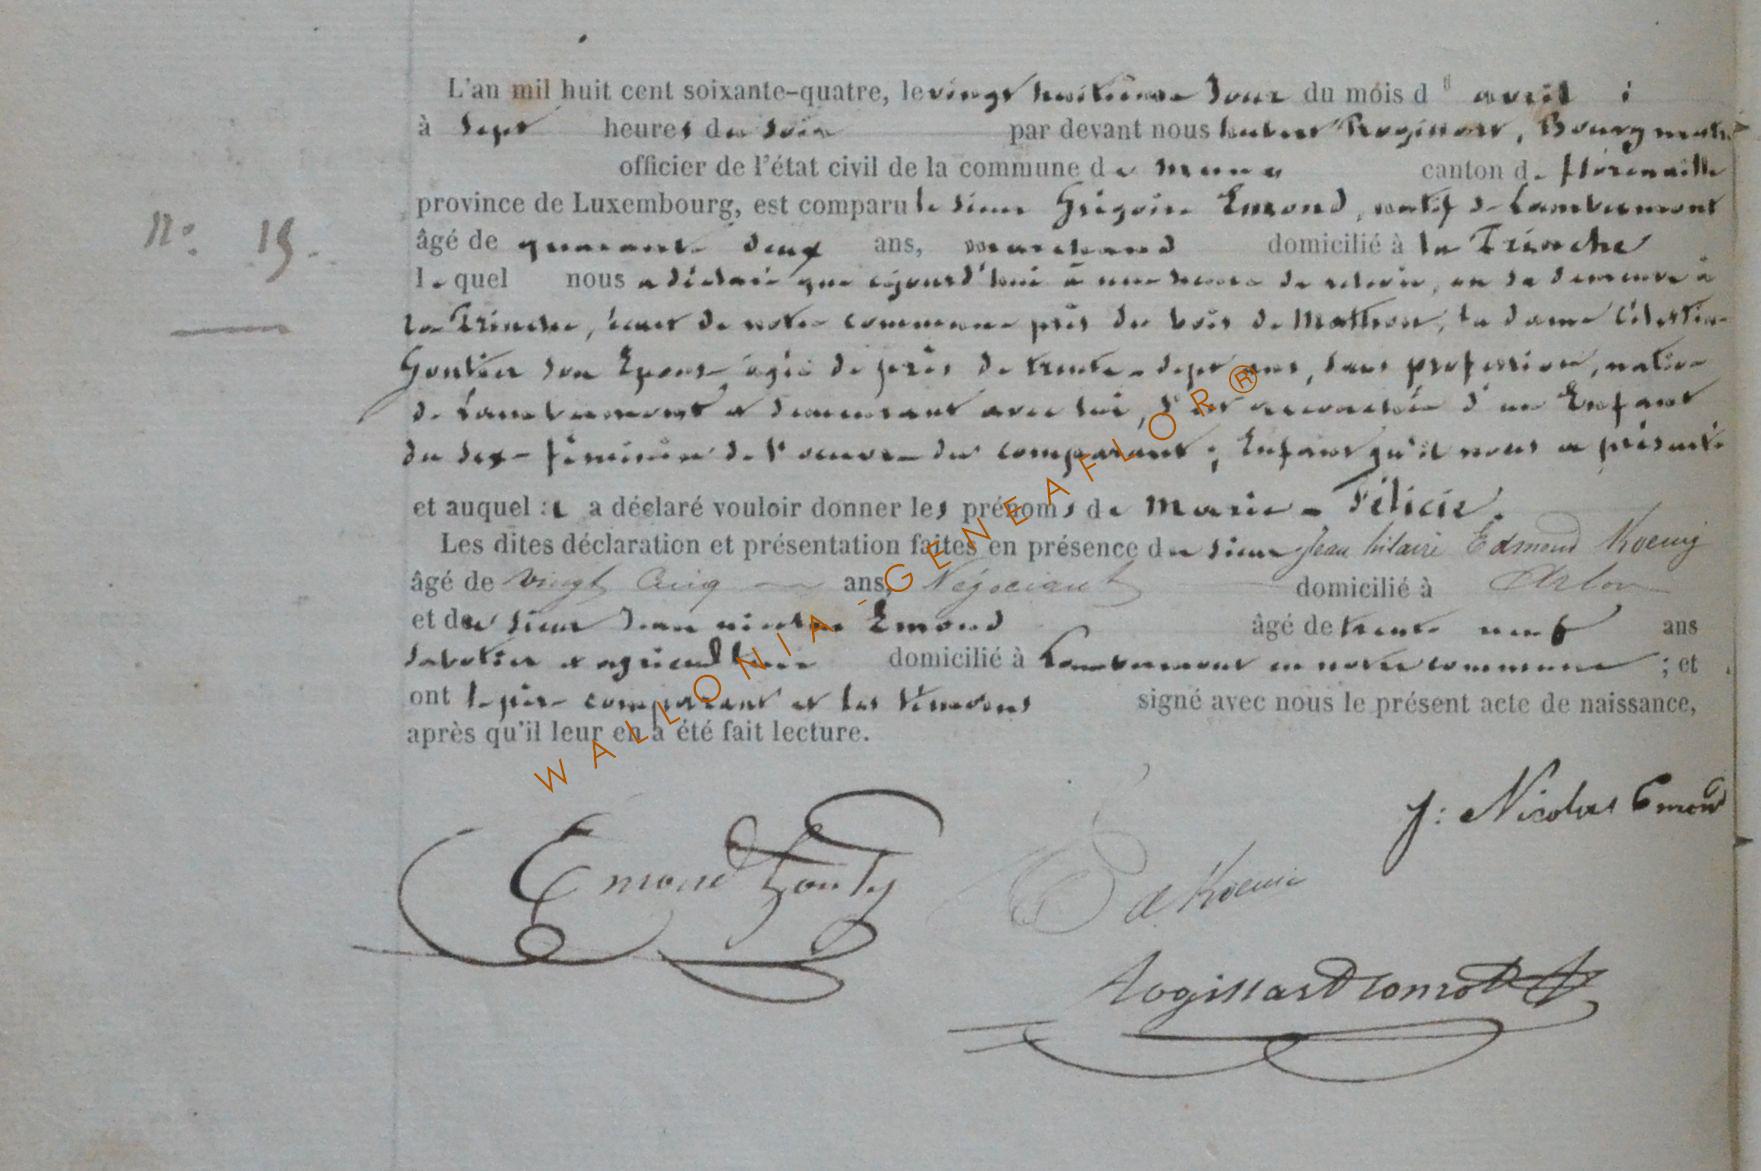 L'an mil huit cent soixante-quatre, le vingt huitième Jour du mois d'' avril
à sept heures du soir par devant nous hubert Rogissart, Bourgmestre
officier de l'état civil de la commune de muno canton de florenville
province de Luxembourg, est comparu le sieur Grégoire Emond, natif de Lambermont
âgé de quarante deux ans, marchand domicilié à la Trinche
N° 19.
lequel nous a déclaré que cejourd'hui à une heure de relevée, en sa demeure à
la Trinche, écart de notre commune près du bois de Mathon, la dame Célestine
Gontier son Epouse âgée de près de trente-sept ans, sans profession, native
de Lambermont et demeurant avec lui, s'est accouchée d'un Enfant
du sexe féminin de l'oeuvre du comparant; Enfant qu'il nous a présenté
et auquel il a déclaré vouloir donner les prénoms de Marie-Félicie.
Les dites déclaration et présentation faites en présence du sieur Jean hilaire Edmond Koenig
âgé de vingt Cinq ans, Négociant domicilié à Arlon
et du sieur Jean nicolas Emond âgé de trente neuf ans
sabotier et agriculteur domicilié à Lambermont en notre commune ; et
ont le père comparant et les témoins signé avec nous le présent acte de naissance,
après qu'il leur en a été fait lecture.
J: Nicolas Emond
Emond Gonty
Ed Koenig
Rogissart
WALLONIA-GENEAFLOR®